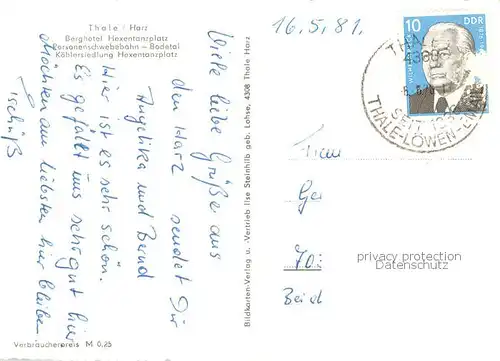 Thale / Harz
Berghotel Hexentanzplatz
Personenschwebebahn – Bodetal
Köhlersiedlung Hexentanzplatz
16.5.81.
Viele liebe Grüße aus
den Harz sendet Dir
Angelika und Bernd
Hier ist es sehr schön.
Es gefällt uns sehr gut hier
möchten am liebsten hier bleiben
tschüß
Verbraucherpreis M 0,25
Bildkarten-Verlag u. -Vertrieb Ilse Steinhilb geb. Lohse, 4308 Thale Harz
10 DDR
THALE
SEIT
THALE-LÖWEN-EMAIL
Ge
70
Beid
privacy protection
Datenschutz